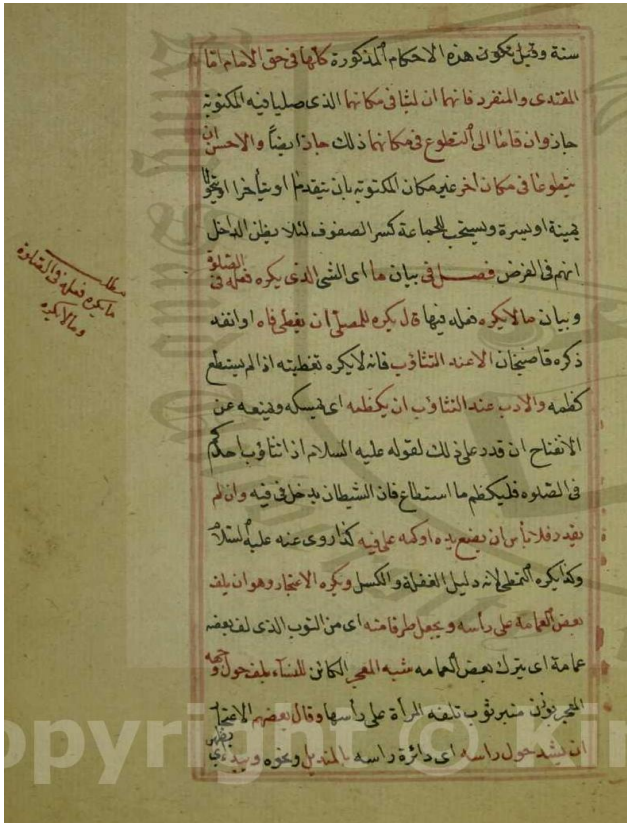 سنة وقيل تكون هذه الاحكام المذكورة كلها فى حق الامام اما
المقتدى والمنفرد فانهما ان لبثا فى مكانهما الذى صليا فيه المكتوبة
جاز وان قاما الى التطوع فى مكانهما ذلك جاز ايضاً والاحسن ان
يتطوعا فى مكان اخر غير مكان المكتوبة بان يتقدما او يتأخرا او يتحولا
يمينة او يسرة ويستحب للجماعة كسر الصفوف لئلا يظن الداخل
انهم فى الفرض فصل فى بيان ما اى الشئ الذى يكره فعله فى الصلوة
وبيان ما لا يكره فعله فيها قال يكره للمصلى ان يغطى فاه او انفه
ذكره قاضيخان الا عند التثاؤب فانه لا يكره تغطيته اذا لم يستطع
كظمه والادب عند التثاؤب ان يكظمه اى يمسكه ويمنعه عن
الانفتاح ان قدر على ذلك لقوله عليه السلام اذا تثاؤب احدكم
فى الصلوه فليكظم ما استطاع فان الشيطان يدخل فى فيه وان لم
يقدر فلا بأس ان يضع يده او كمه على فيه كذا روى عنه عليه السلام
وكذا يكره التمطى لانه دليل الغفلة والكسل ويكره الاعتجار وهو ان يلف
بعض العمامة على رأسه ويجعل طرفا منه اى من الثوب الذى لف بعضه
عمامة اى يترك بعض العمامه شبه المعجر الكائن للنساء يلف حول وجهه
المعجر بوزن منبر ثوب تلفه المرأة على رأسها وقال بعضهم الاعتجار
ان يشد حول راسه اى دائرة راسه بالمنديل ونحوه ويبدى
يظهر
مطلب
ما يكره فعله فى الصلوة
وما لا يكره
opyright © Kin